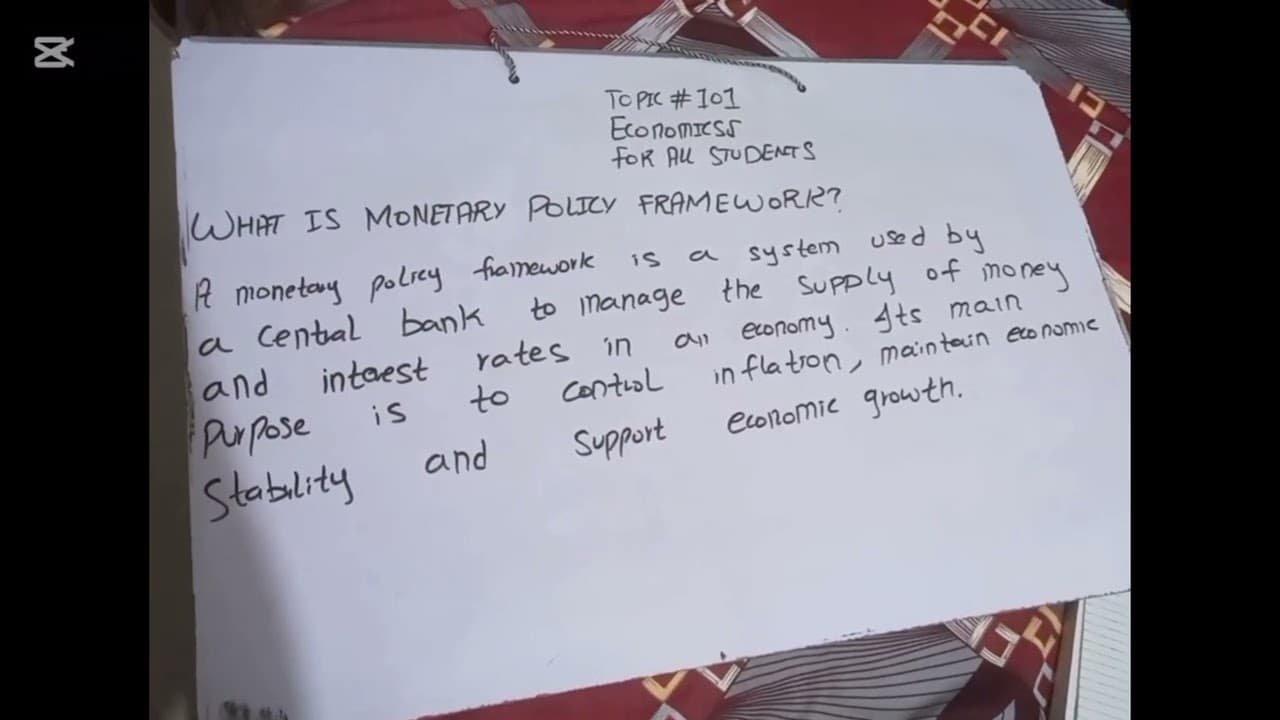 TOPIC #101
ECONOMICSS
FOR ALL STUDENTS
WHAT IS MONETARY POLICY FRAMEWORK?
A monetary policy framework is a system used by
a central bank to manage the supply of money
and interest rates in an economy. Its main
Purpose is to control inflation, maintain economic
Stability and support economic growth.